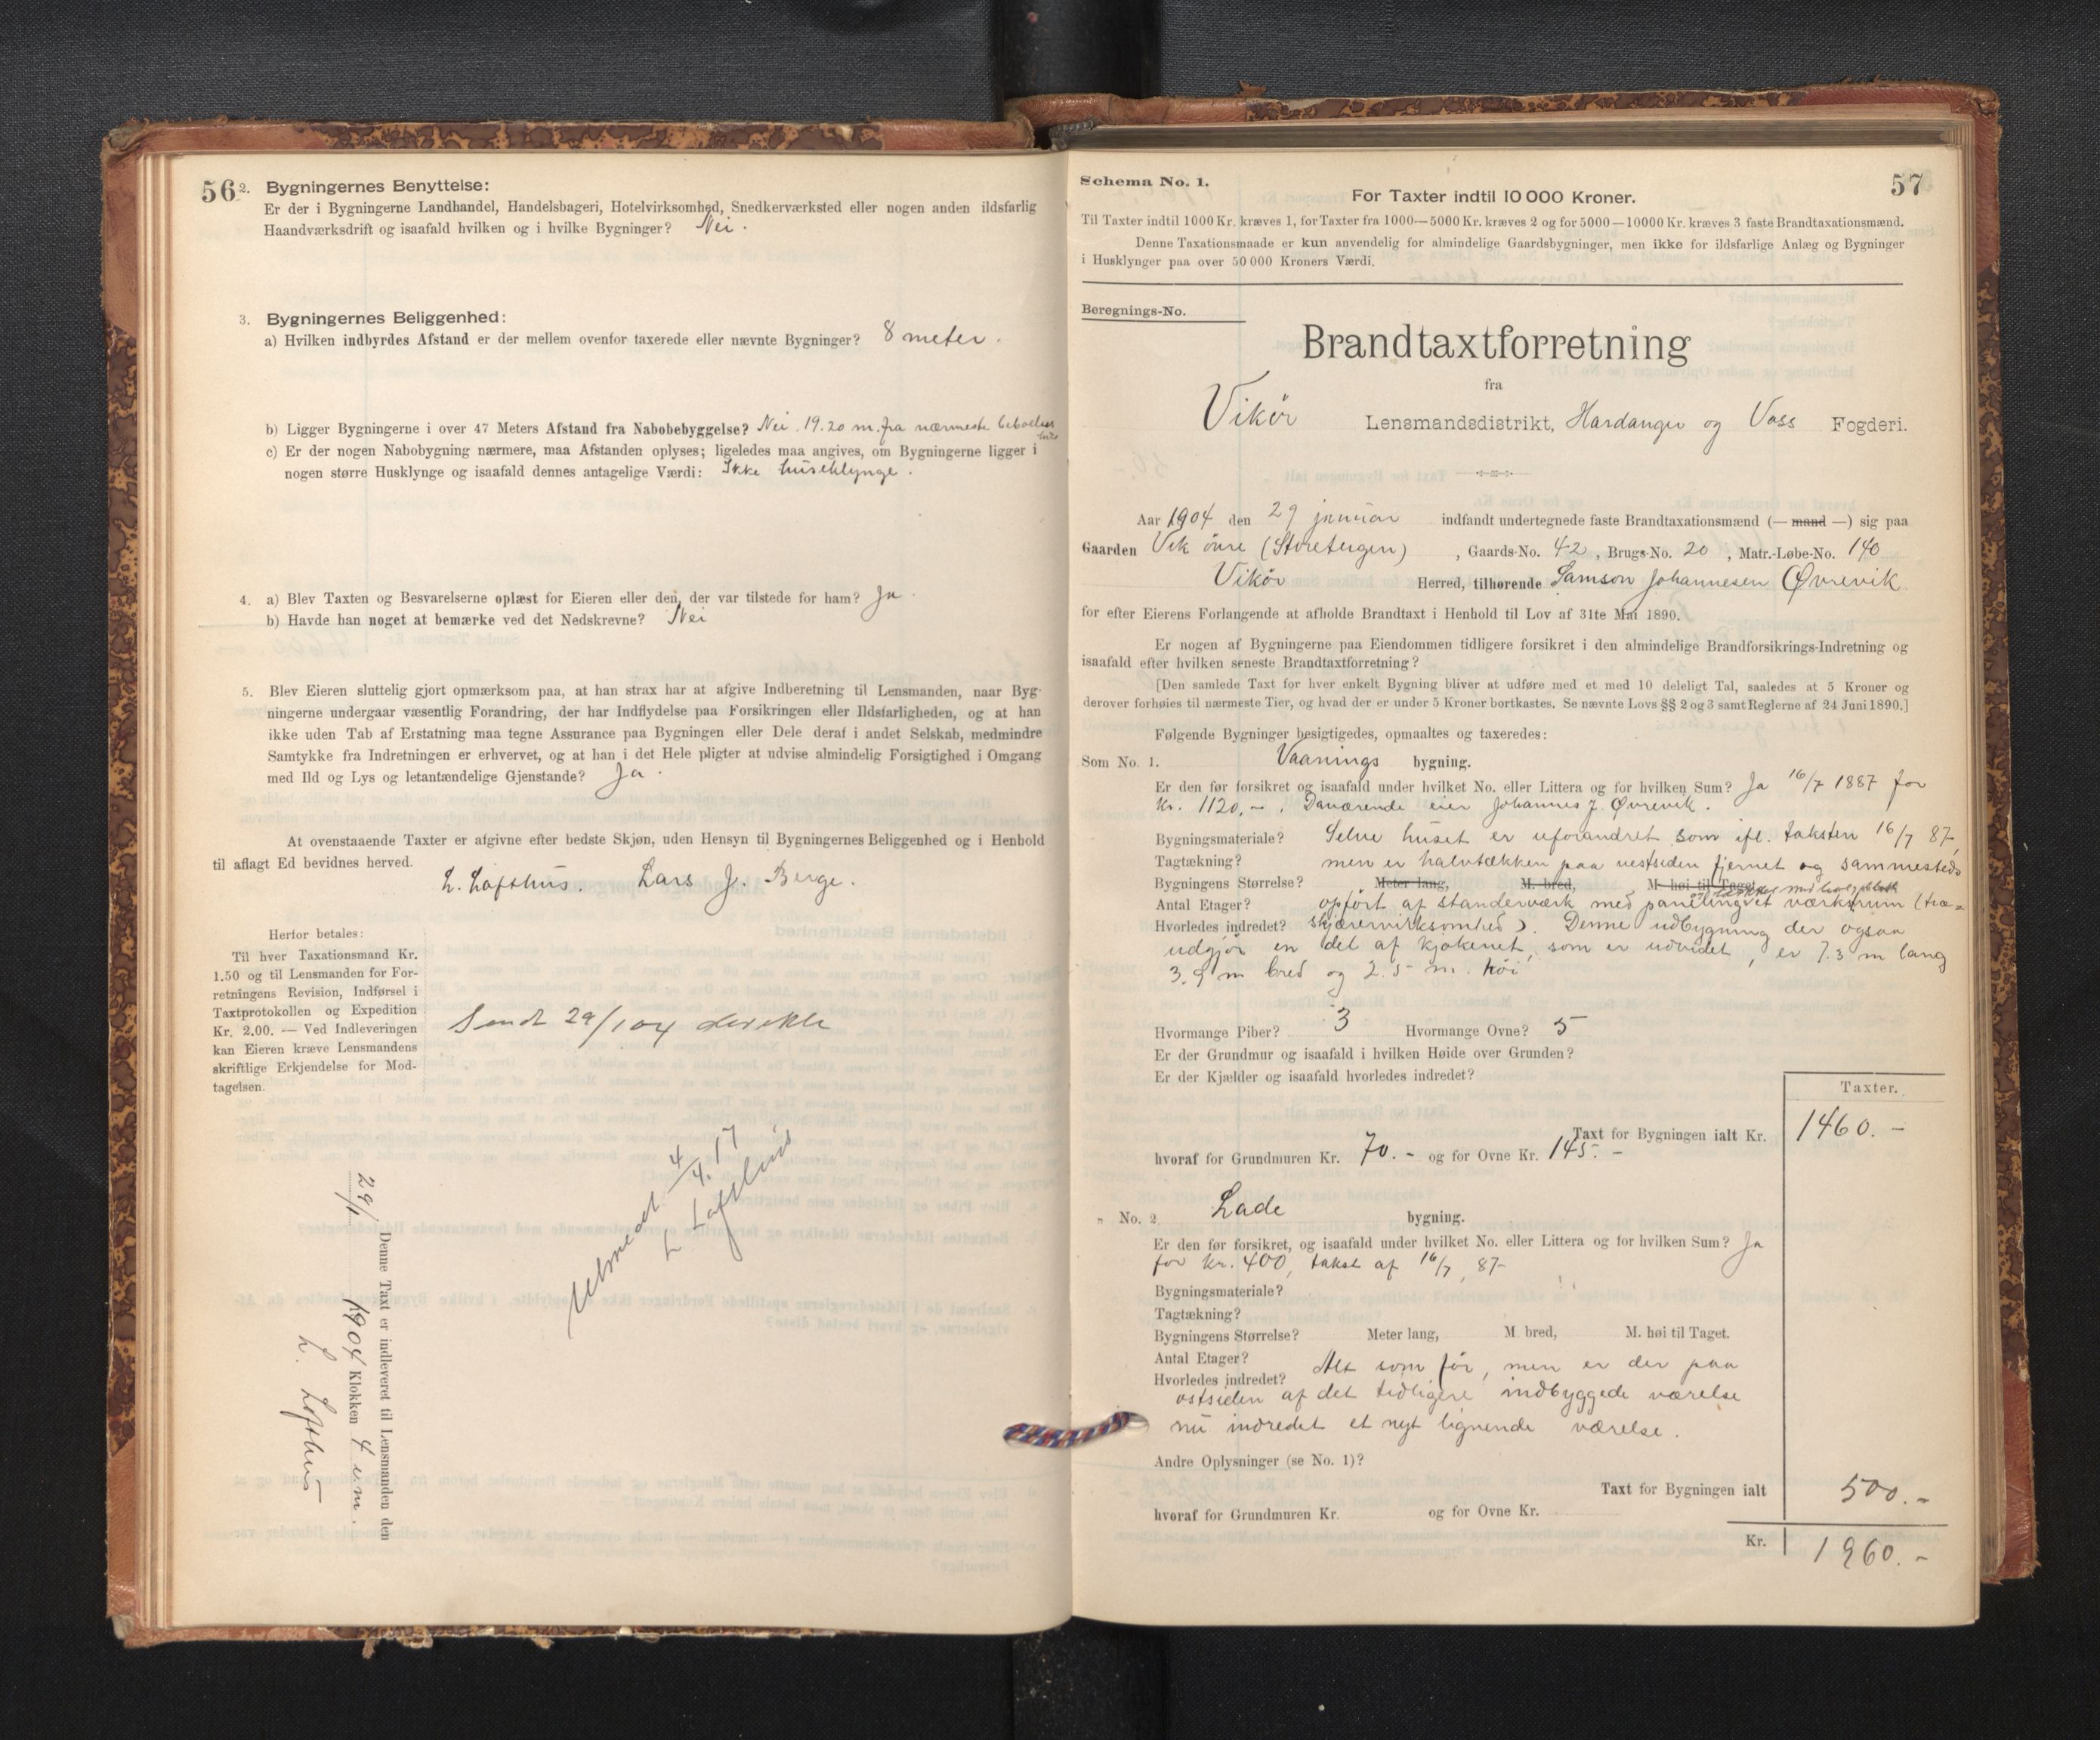 56
2. Bygningernes Benyttelse:
Er der i Bygningerne Landhandel, Handelsbageri, Hotelvirksomhed, Snedkerværksted eller nogen anden ildsfarlig
Haandværksdrift og isaafald hvilken og i hvilke Bygninger? Nei.
3. Bygningernes Beliggenhed:
a) Hvilken indbyrdes Afstand er der mellem ovenfor taxerede eller nævnte Bygninger? 8 meter.
b) Ligger Bygningerne i over 47 Meters Afstand fra Nabobebyggelse? Nei. 19.20 m. fra nærmeste beboelses
hus
c) Er der nogen Nabobygning nærmere, maa Afstanden oplyses; ligeledes maa angives, om Bygningerne ligger i
nogen større Husklynge og isaafald dennes antagelige Værdi: Ikke huseklynge.
4. a) Blev Taxten og Besvarelserne oplæst for Eieren eller den, der var tilstede for ham? Ja.
b) Havde han noget at bemærke ved det Nedskrevne? Nei
5. Blev Eieren sluttelig gjort opmærksom paa, at han strax har at afgive Indberetning til Lensmanden, naar Byg-
ningerne undergaar væsentlig Forandring, der har Indflydelse paa Forsikringen eller Ildsfarligheden, og at han
ikke uden Tab af Erstatning maa tegne Assurance paa Bygningen eller Dele deraf i andet Selskab, medmindre
Samtykke fra Indretningen er erhvervet, og at han i det Hele pligter at udvise almindelig Forsigtighed i Omgang
med Ild og Lys og letantændelige Gjenstande? Ja.
At ovenstaaende Taxter er afgivne efter bedste Skjøn, uden Hensyn til Bygningernes Beliggenhed og i Henhold
til aflagt Ed bevidnes herved.
L. Lofthus. Lars J. Berge.
Herfor betales:
Til hver Taxationsmand Kr.
1.50 og til Lensmanden for For-
retningens Revision, Indførsel i
Taxtprotokollen og Expedition
Kr. 2.00. — Ved Indleveringen
kan Eieren kræve Lensmandens
skriftlige Erkjendelse for Mod-
tagelsen.
Sendt 29/1 04 direkte
Utmeldt 4/4.17
L Lofthus
Denne Taxt er indleveret til Lensmanden den
29/1 1904 Klokken 4 em.
L. Lofthus
57
Schema No. 1.
For Taxter indtil 10 000 Kroner.
Til Taxter indtil 1000 Kr. kræves 1, for Taxter fra 1000—5000 Kr. kræves 2 og for 5000—10000 Kr. kræves 3 faste Brandtaxationsmænd.
Denne Taxationsmaade er kun anvendelig for almindelige Gaardsbygninger, men ikke for ildsfarlige Anlæg og Bygninger
i Husklynger paa over 50 000 Kroners Værdi.
Beregnings-No.
Brandtaxtforretning
fra
Vikør Lensmandsdistrikt, Hardanger og Voss Fogderi.
Aar 1904 den 29 januar indfandt undertegnede faste Brandtaxationsmænd (— mand —) sig paa
Gaarden Vik øvre (Storeteigen), Gaards-No. 42, Brugs-No. 20, Matr.-Løbe-No. 140
Vikør Herred, tilhørende Samson Johannesen Øvrevik
for efter Eierens Forlangende at afholde Brandtaxt i Henhold til Lov af 31te Mai 1890.
Er nogen af Bygningerne paa Eiendommen tidligere forsikret i den almindelige Brandforsikrings-Indretning og
isaafald efter hvilken seneste Brandtaxtforretning?
[Den samlede Taxt for hver enkelt Bygning bliver at udføre med et med 10 deleligt Tal, saaledes at 5 Kroner og
derover forhøies til nærmeste Tier, og hvad der er under 5 Kroner bortkastes. Se nævnte Lovs §§ 2 og 3 samt Reglerne af 24 Juni 1890.]
Følgende Bygninger besigtigedes, opmaaltes og taxeredes:
Som No. 1. Vaanings bygning.
Er den før forsikret og isaafald under hvilket No. eller Littera og for hvilken Sum? Ja 16/7 1887 for
kr. 1120,-. Daværende eier Johannes J. Øvrevik.
Bygningsmateriale? Selve huset er uforandret som ifl. taksten 16/7 87,
Tagtækning? men er halvtækken paa vestsiden fjernet og sammesteds
Bygningens Størrelse? Meter lang, M. bred, M. høi til Taget.
Antal Etager? opført af standerværk med paneling et værksrum (træ=
Hvorledes indredet? skjærervirksomhed). Denne udbygning der ogsaa
udgjør en del af kjøkenet, som er udvidet, er 7.3 m lang
3.9 m bred og 2.5 m. høi
Hvormange Piber? 3 Hvormange Ovne? 5
Er der Grundmur og isaafald i hvilken Høide over Grunden?
Er der Kjælder og isaafald hvorledes indredet?
Taxter.
Taxt for Bygningen ialt Kr. 1460.-
hvoraf for Grundmuren Kr. 70.- og for Ovne Kr. 145.-
„ No. 2 Lade bygning.
Er den før forsikret, og isaafald under hvilket No. eller Littera og for hvilken Sum? Ja
for kr. 400, takst af 16/7, 87-
Bygningsmateriale?
Tagtækning?
Bygningens Størrelse? Meter lang, M. bred, M. høi til Taget.
Antal Etager? Alt som før, men er der paa
Hvorledes indredet?
østsiden af det tidligere indbyggede værelse
nu indredet et nyt lignende værelse.
Andre Oplysninger (se No. 1)?
Taxt for Bygningen ialt 500.-
hvoraf for Grundmuren Kr. og for Ovne Kr.
Kr. 1960.-